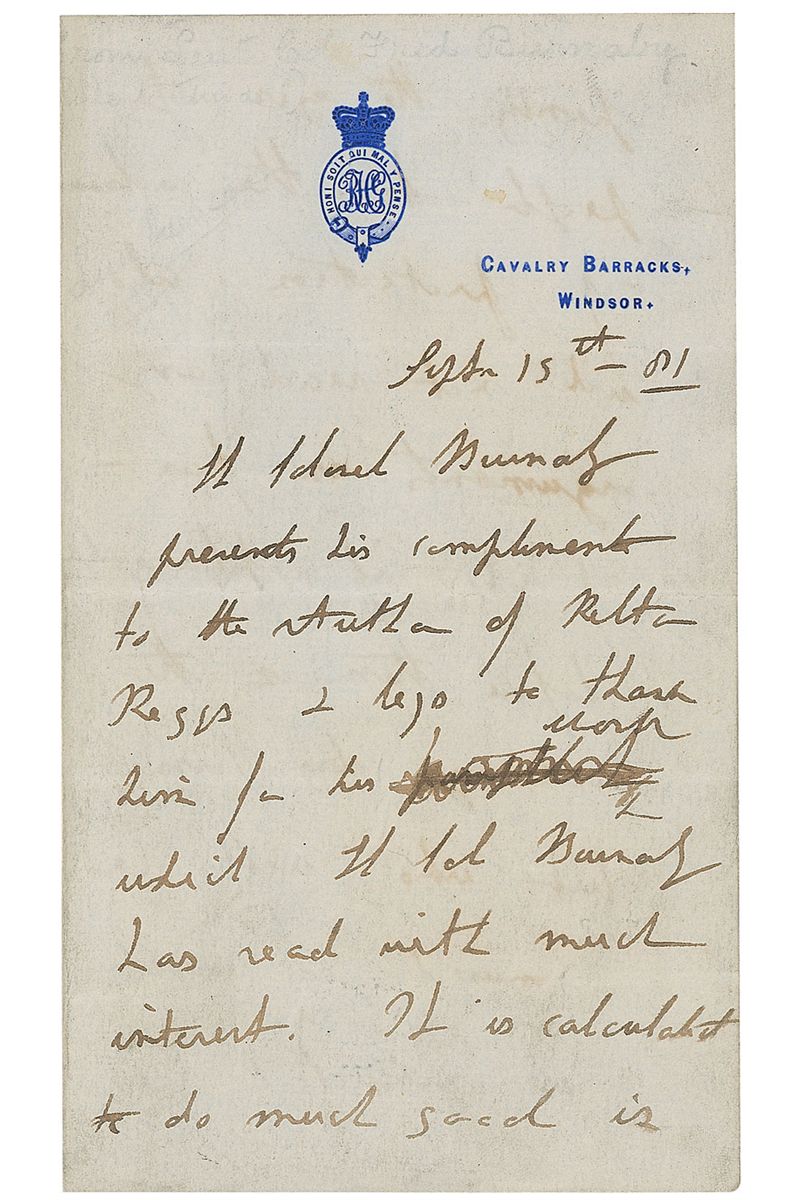 HONI SOIT QUI MAL Y PENSE
RHG
CAVALRY BARRACKS,
WINDSOR.
Septr 15th - 81
Lt Colonel Burnaby
presents his compliments
to the Author of
& begs to thank
work
him for his pamphlet
which Lt Col Burnaby
has read with much
interest. It is calculated
to do much good in